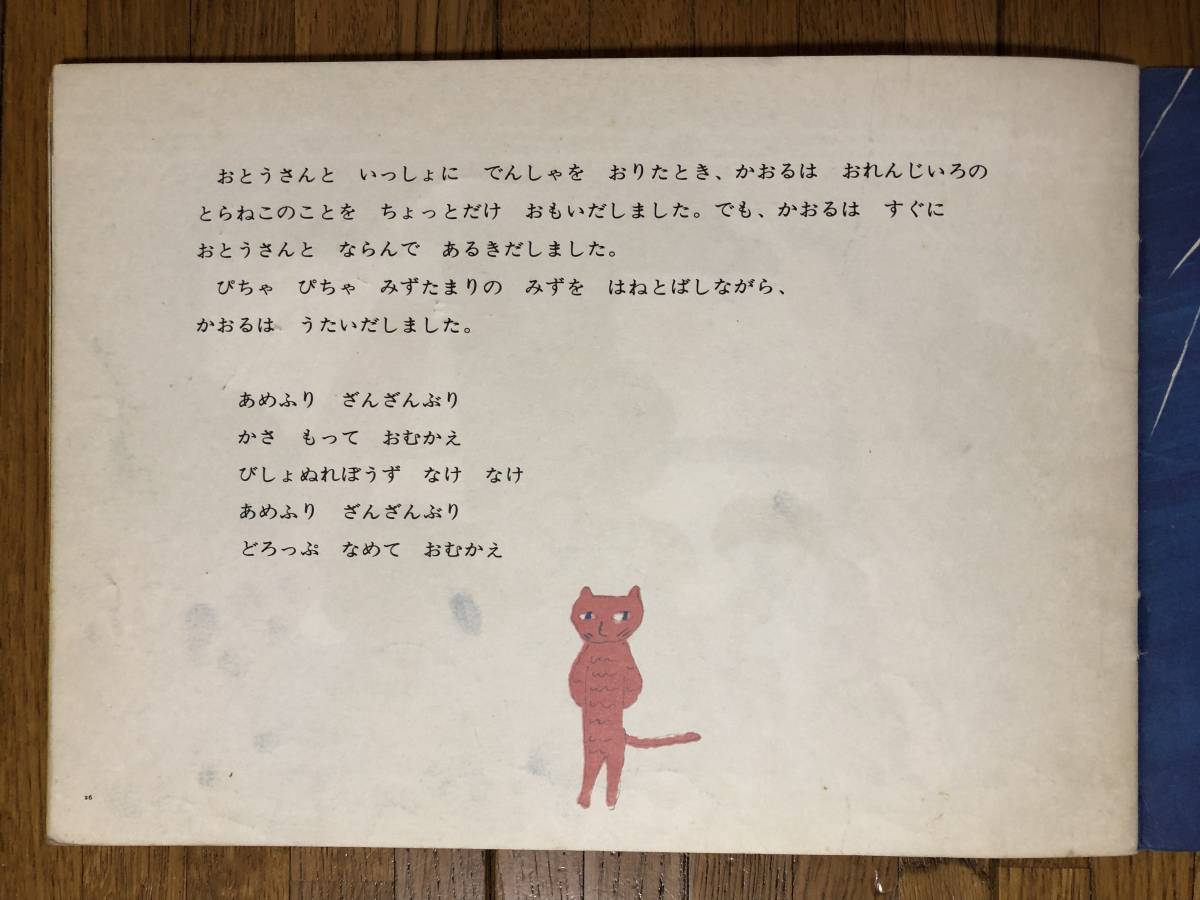 おとうさんと　いっしょに　でんしゃを　おりたとき、かおるは　おれんじいろの
とらねこのことを　ちょっとだけ　おもいだしました。でも、かおるは　すぐに
おとうさんと　ならんで　あるきだしました。
ぴちゃ　ぴちゃ　みずたまりの　みずを　はねとばしながら、
かおるは　うたいだしました。
あめふり　ざんざんぶり
かさ　もって　おむかえ
びしょぬれぼうず　なけ　なけ
あめふり　ざんざんぶり
どろっぷ　なめて　おむかえ
26